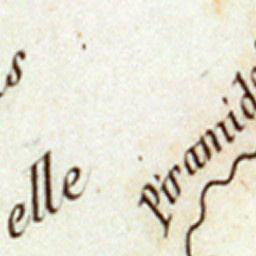 s
elle
Piramide